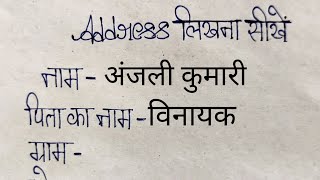 Address लिखना सीखें
नाम - अंजली कुमारी
पिता का नाम - विनायक
ग्राम -